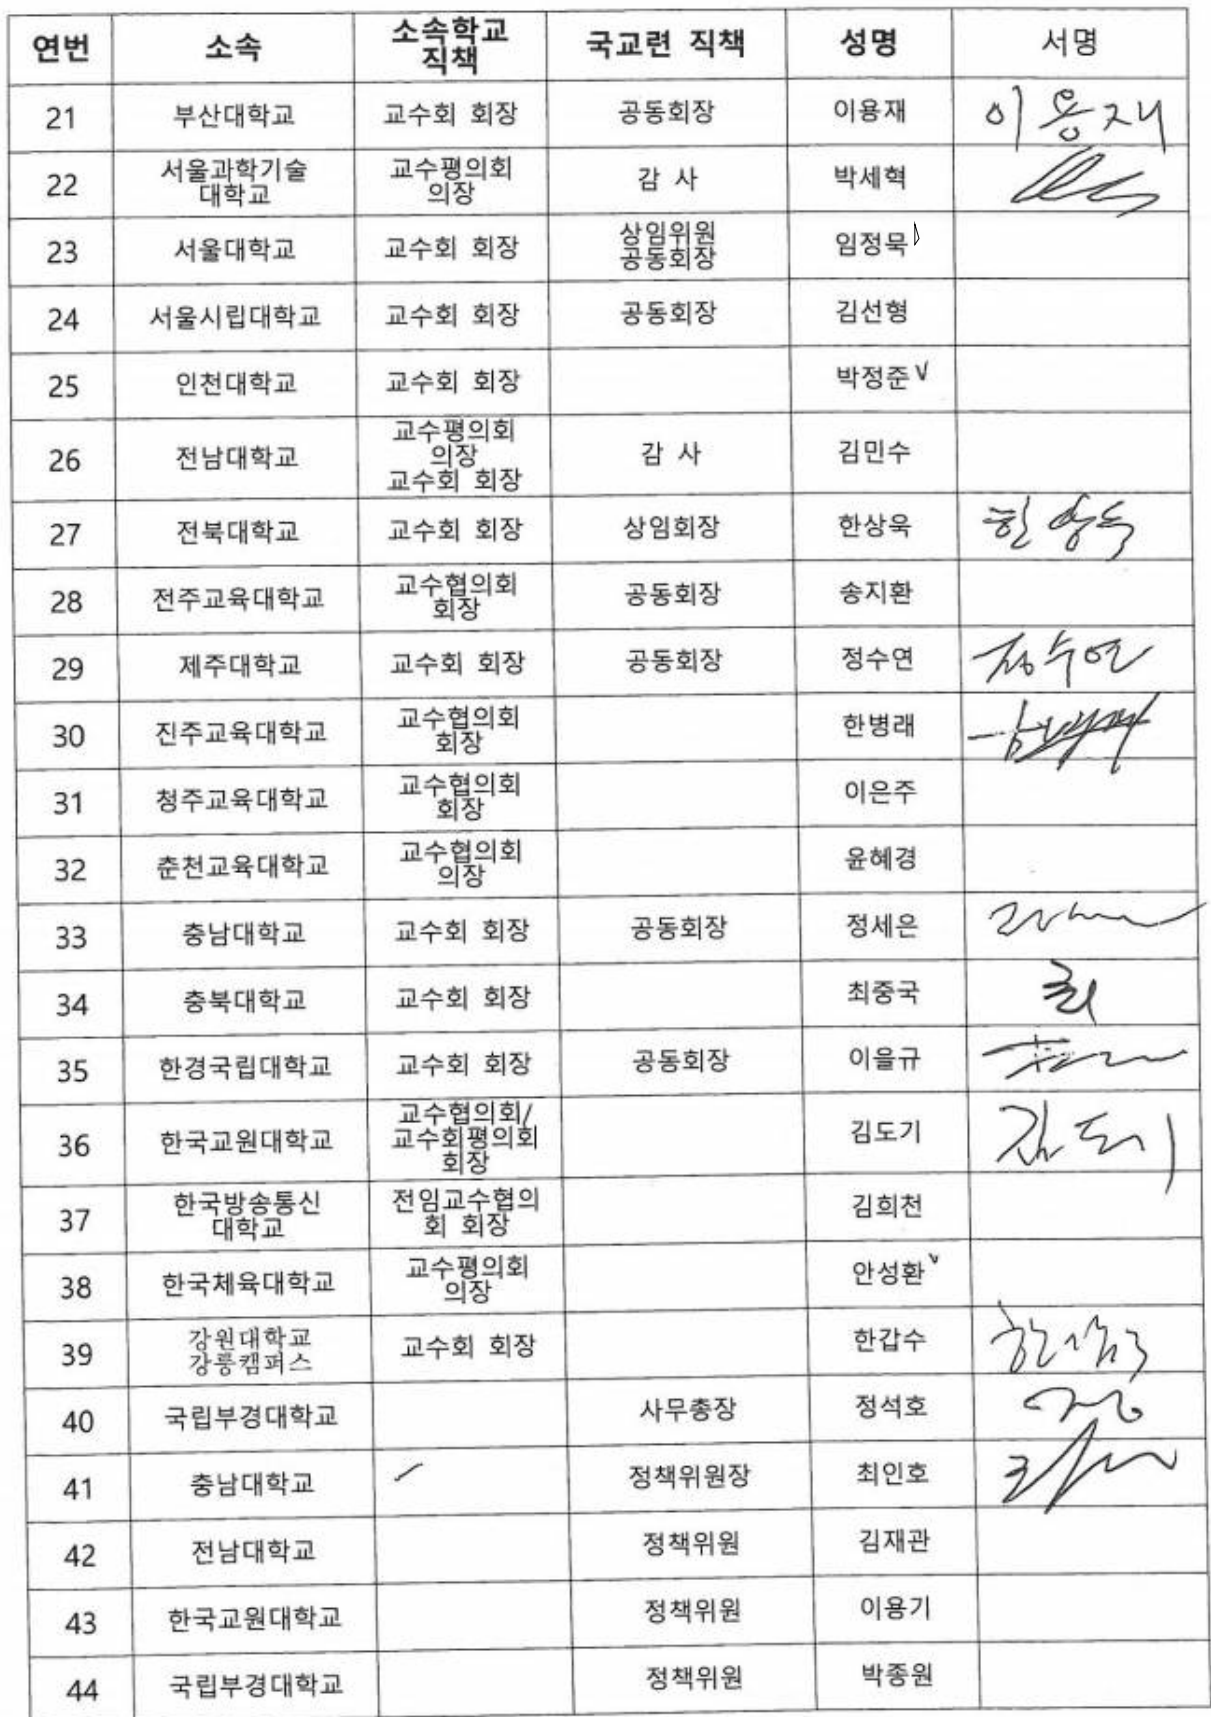 연번 소속 소속학교 직책 국교련 직책 성명 서명
21 부산대학교 교수회 회장 공동회장 이용재 이용재
22 서울과학기술 대학교 교수평의회 의장 감 사 박세혁
23 서울대학교 교수회 회장 상임위원 공동회장 임정묵
24 서울시립대학교 교수회 회장 공동회장 김선형
25 인천대학교 교수회 회장 박정준 ∨
26 전남대학교 교수평의회 의장 교수회 회장 감 사 김민수
27 전북대학교 교수회 회장 상임회장 한상욱 한상욱
28 전주교육대학교 교수협의회 회장 공동회장 송지환
29 제주대학교 교수회 회장 공동회장 정수연 정수연
30 진주교육대학교 교수협의회 회장 한병래
31 청주교육대학교 교수협의회 회장 이은주
32 춘천교육대학교 교수협의회 의장 윤혜경
33 충남대학교 교수회 회장 공동회장 정세은
34 충북대학교 교수회 회장 최중국 최
35 한경국립대학교 교수회 회장 공동회장 이을규
36 한국교원대학교 교수협의회/ 교수회평의회 회장 김도기 김도기
37 한국방송통신 대학교 전임교수협의 회 회장 김희천
38 한국체육대학교 교수평의회 의장 안성환 ∨
39 강원대학교 강릉캠퍼스 교수회 회장 한갑수 한갑수
40 국립부경대학교 사무총장 정석호 정
41 충남대학교 정책위원장 최인호
42 전남대학교 정책위원 김재관
43 한국교원대학교 정책위원 이용기
44 국립부경대학교 정책위원 박종원